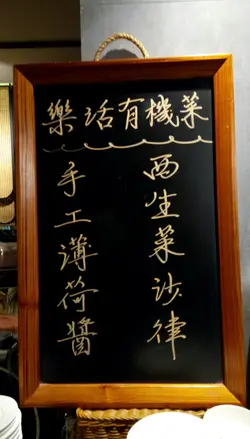 樂活有機菜
西生菜沙律
手工薄荷醬